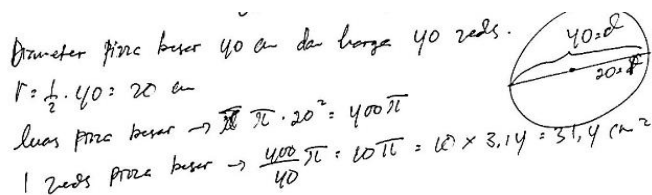 Diameter pizza besar 40 cm dan harga 40 zeds.
r = 1/2 . 40 = 20 cm
luas pizza besar → π . 20² = 400 π
1 zeds pizza besar → 400/40 π = 10 π = 10 × 3,14 = 31,4 cm²
40 = d
20 = r